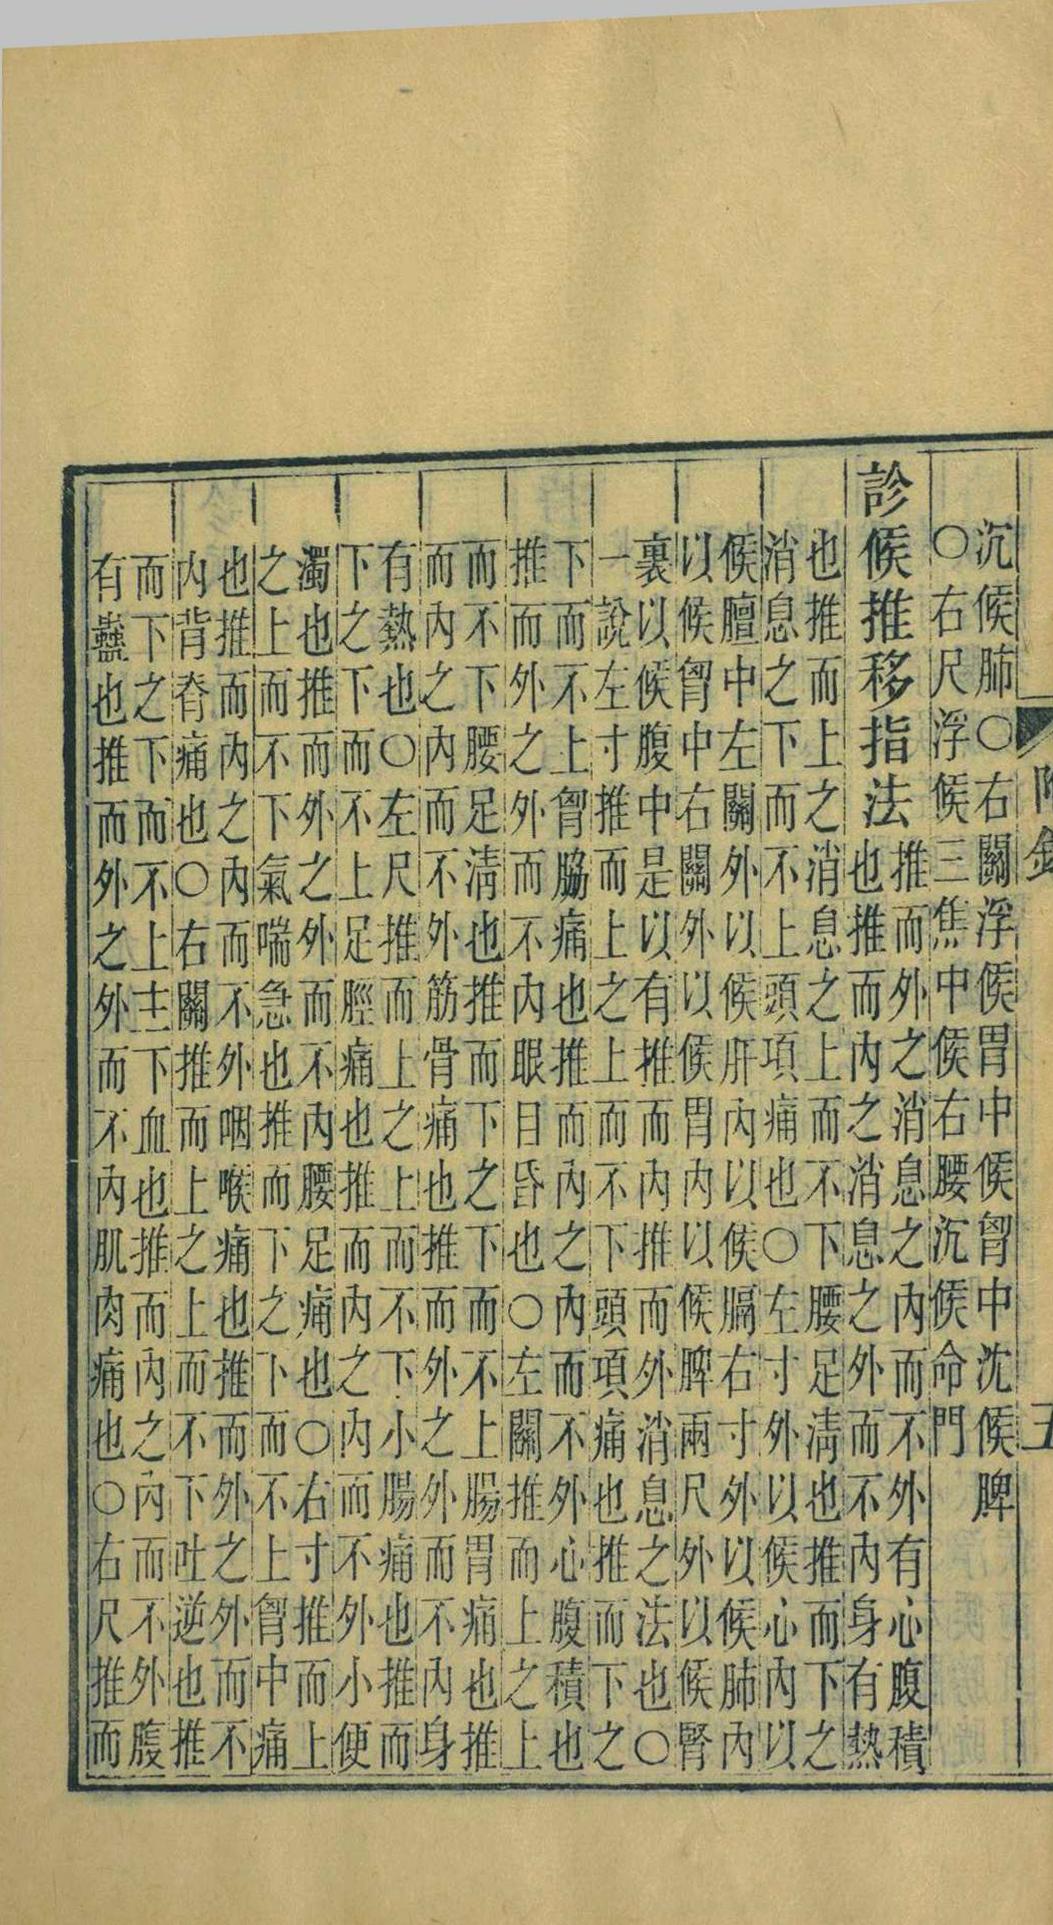 沉候肺○右關浮候胃中候胷中沈候脾
○右尺浮候三焦中候右腰沉候命門
診候推移指法
推而外之消息之內而不外有心腹積
也推而內之消息之外而不內身有熱
也推而上之消息之上而不下腰足淸也推而下之
消息之下而不上頭項痛也○左寸外以候心內以
候膻中左關外以候肝內以候膈右寸外以候肺內
以候胷中右關外以候胃內以候脾兩尺外以候腎
裏以候腹中是以有推而內推而外消息之法也○
一說左寸推而上之上而不下頭項痛也推而下之
下而不上胷脇痛也推而內之內而不外心腹積也
推而外之外而不內眼目昏也○左關推而上之上
而不下腰足淸也推而下之下而不上腸胃痛也推
而內之內而不外筋骨痛也推而外之外而不內身
有熱也○左尺推而上之上而不下小腸痛也推而
下之下而不上足脛痛也推而內之內而不外小便
濁也推而外之外而不內腰足痛也○右寸推而上
之上而不下氣喘急也推而下之下而不上胷中痛
也推而內之內而不外咽喉痛也推而外之外而不
內背脊痛也○右關推而上之上而不下吐逆也推
而下之下而不上主下血也推而內之內而不外腹
有蠱也推而外之外而不內肌肉痛也○右尺推而